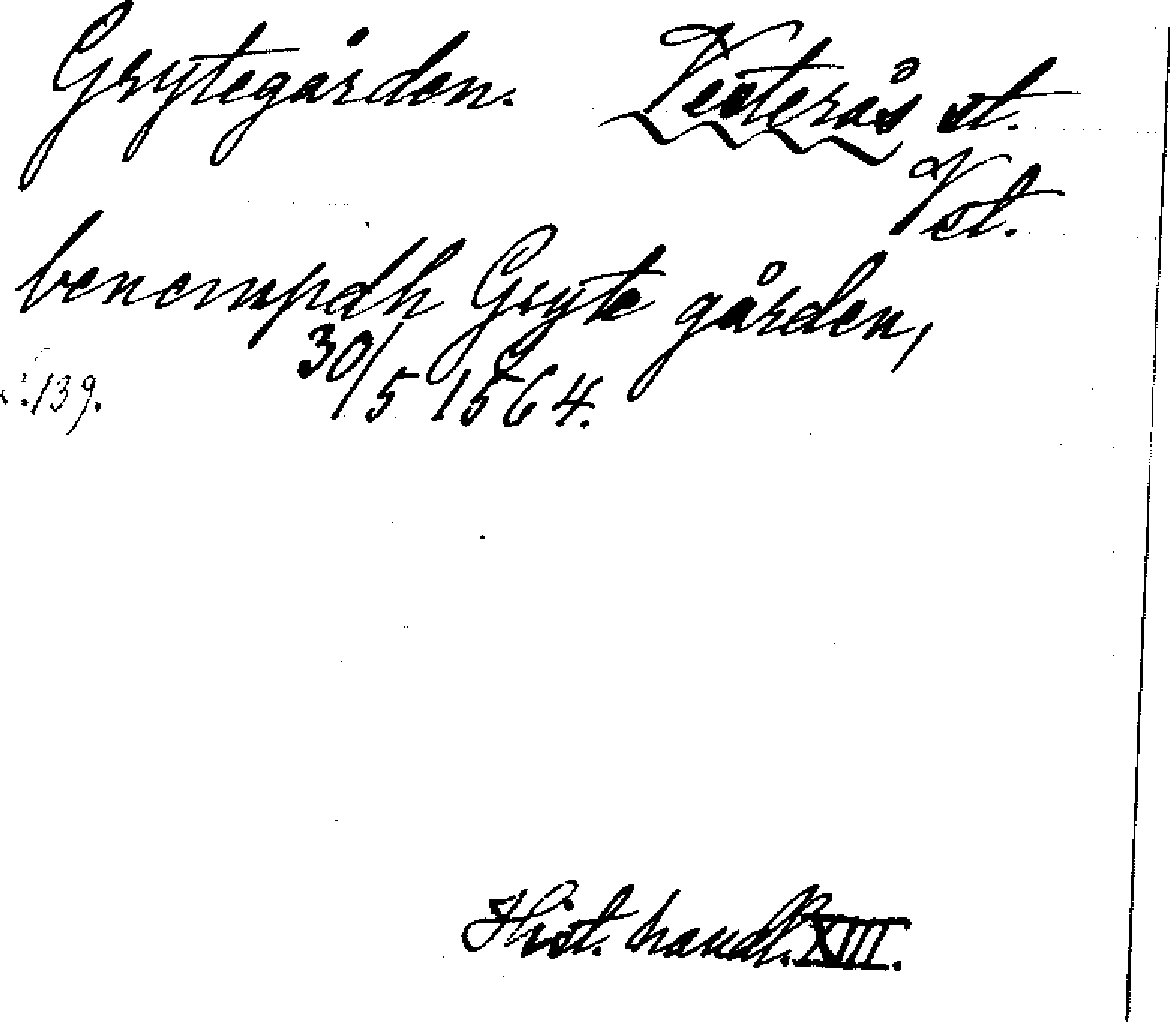 Grytegården. Vesterås st.
Vst.
benempdh Gryte gården,
30/5 1564.
s. 139.
Hist. handl. XIII.